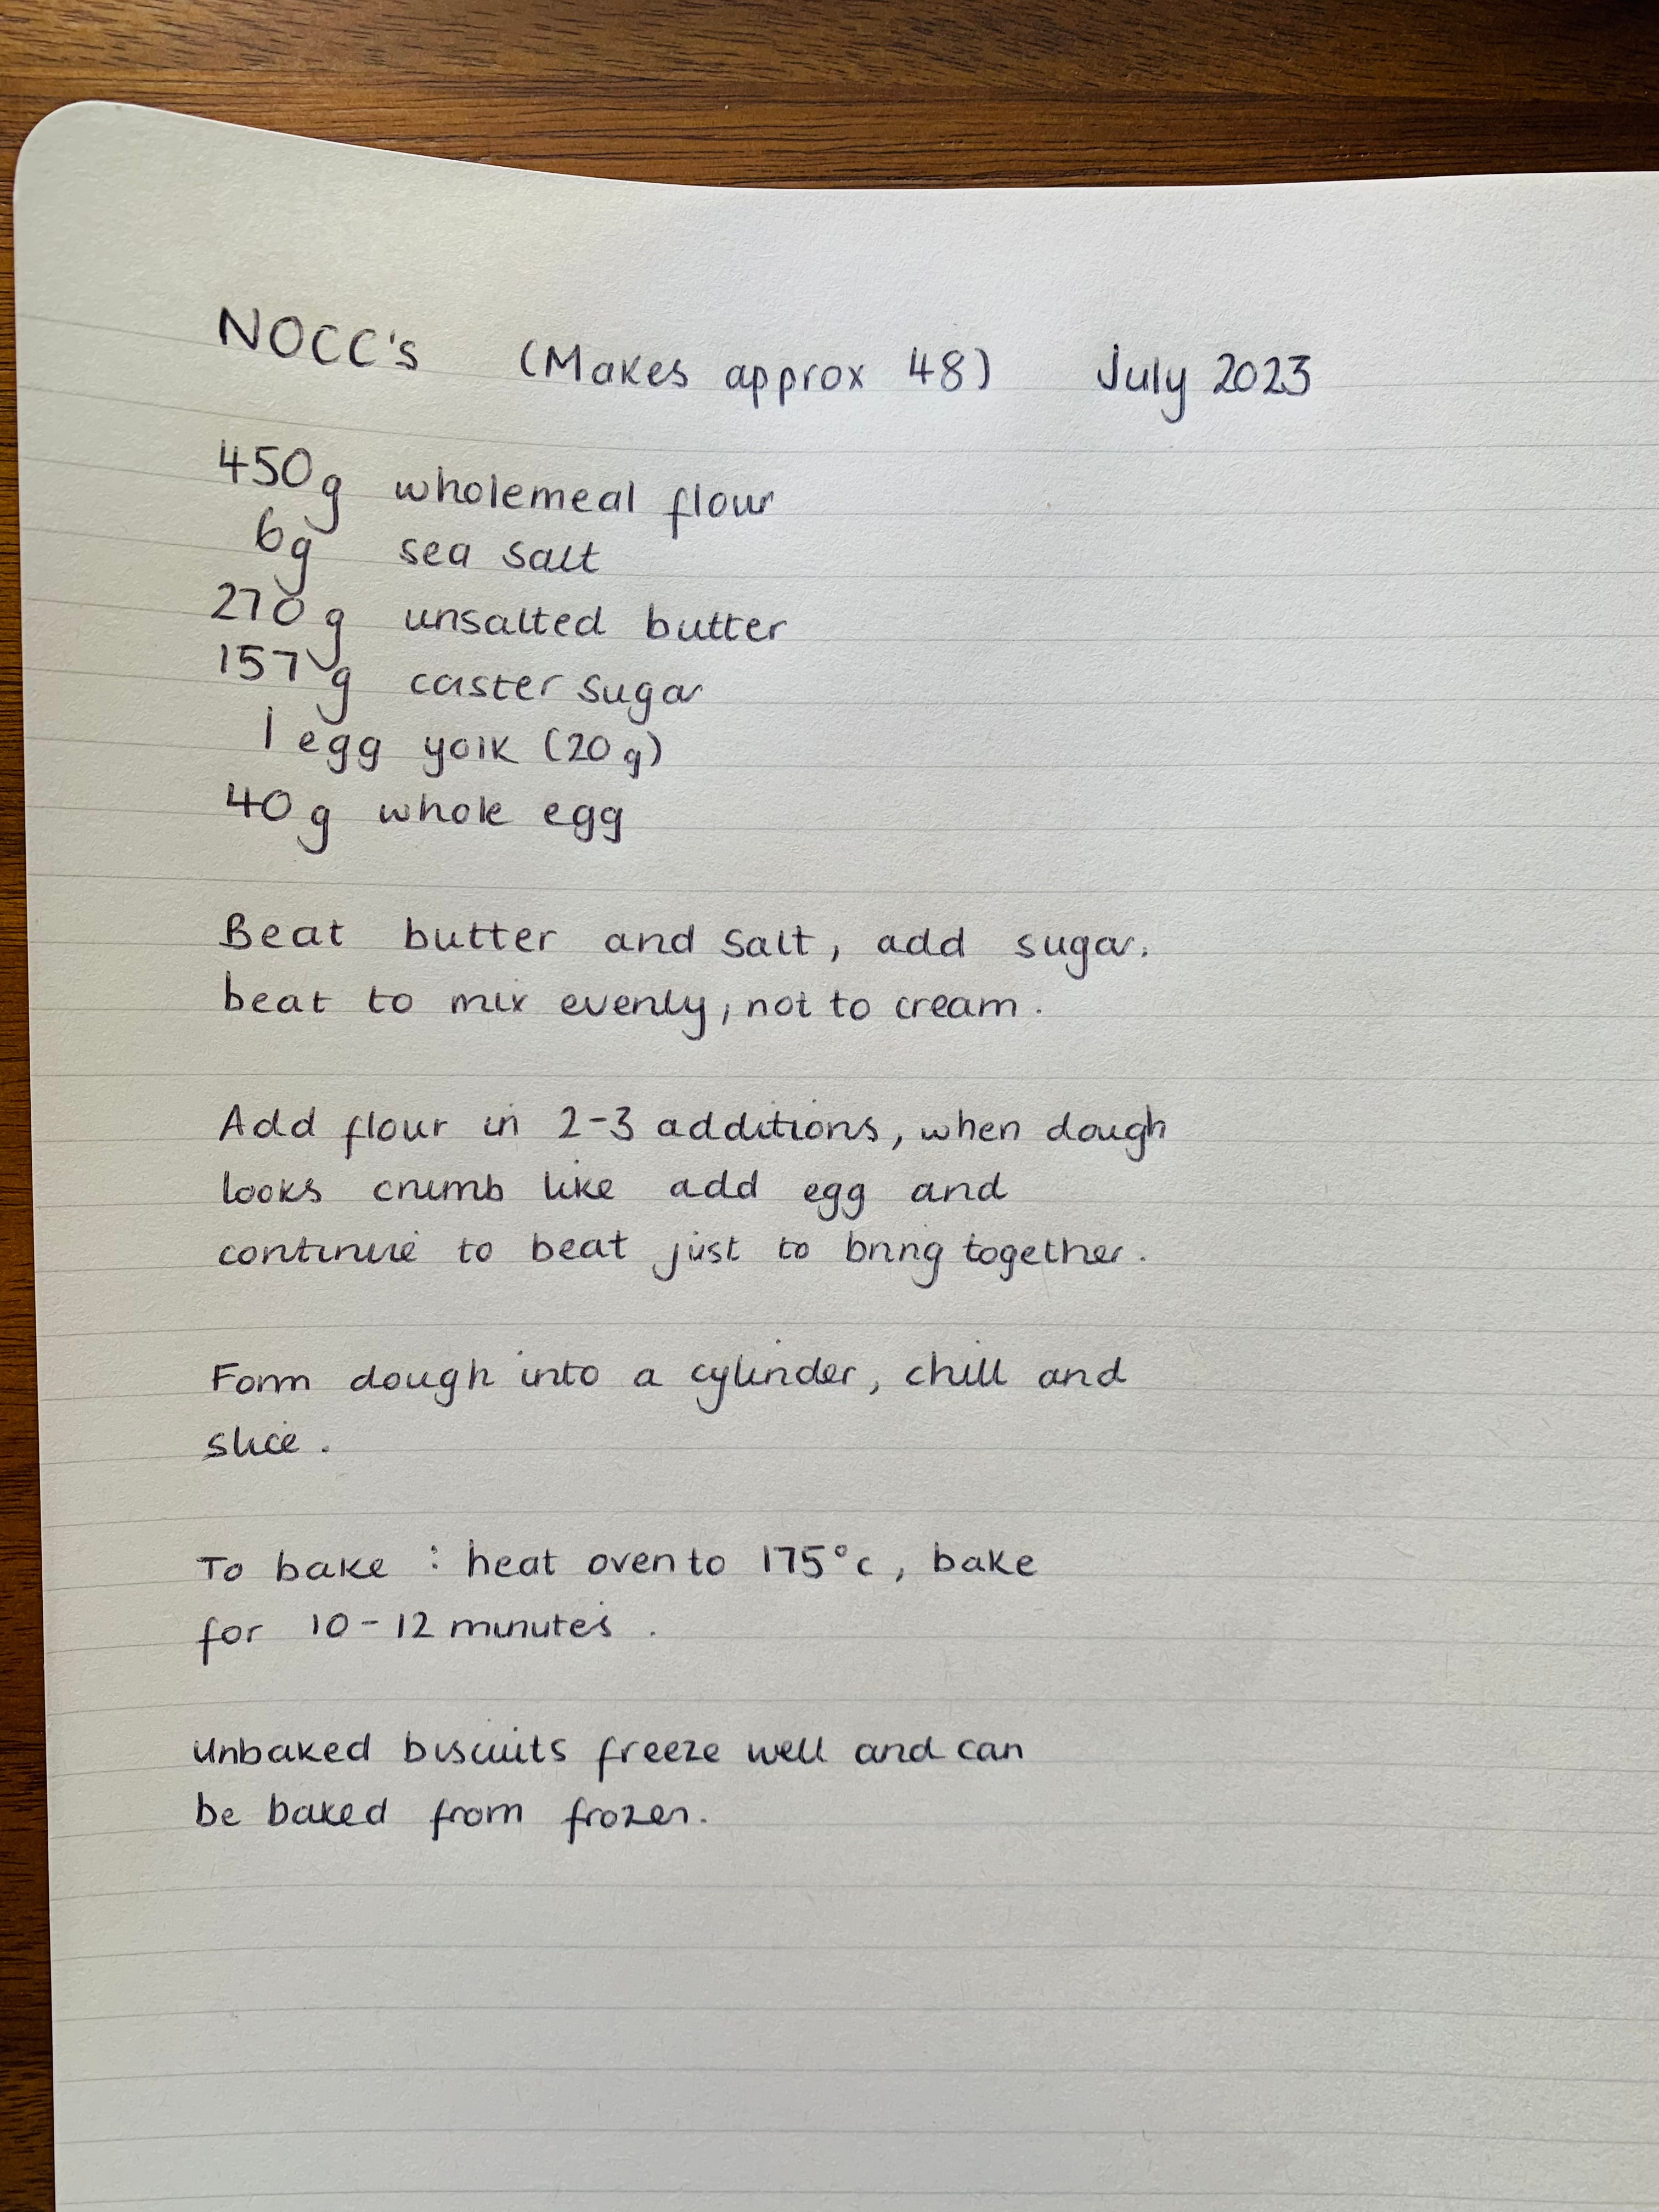 NOCC's (Makes approx 48) July 2023
450g wholemeal flour
6g sea salt
270g unsalted butter
157g caster sugar
1 egg yolk (20g)
40g whole egg
Beat butter and salt, add sugar.
beat to mix evenly, not to cream.
Add flour in 2-3 additions, when dough
looks crumb like add egg and
continue to beat just to bring together.
Form dough into a cylinder, chill and
slice.
To bake : heat oven to 175°c, bake
for 10-12 minutes.
Unbaked biscuits freeze well and can
be baked from frozen.